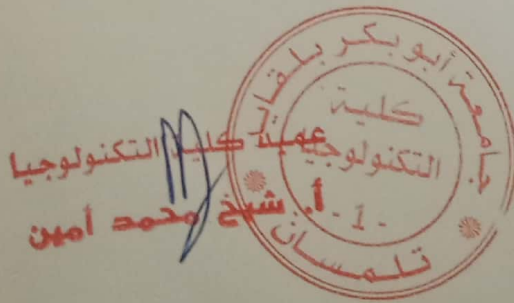 جامعة أبو بكر بلقايد
كلية
التكنولوجيا
- 1 -
تلمسان
عميد كلية التكنولوجيا
أ. شيخ محمد أمين